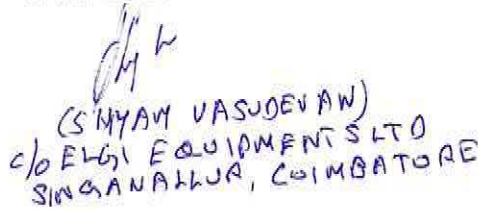 (SHYAM VASUDEVAN)
c/o ELGI EQUIPMENTS LTD
SINGANALLUR, COIMBATORE